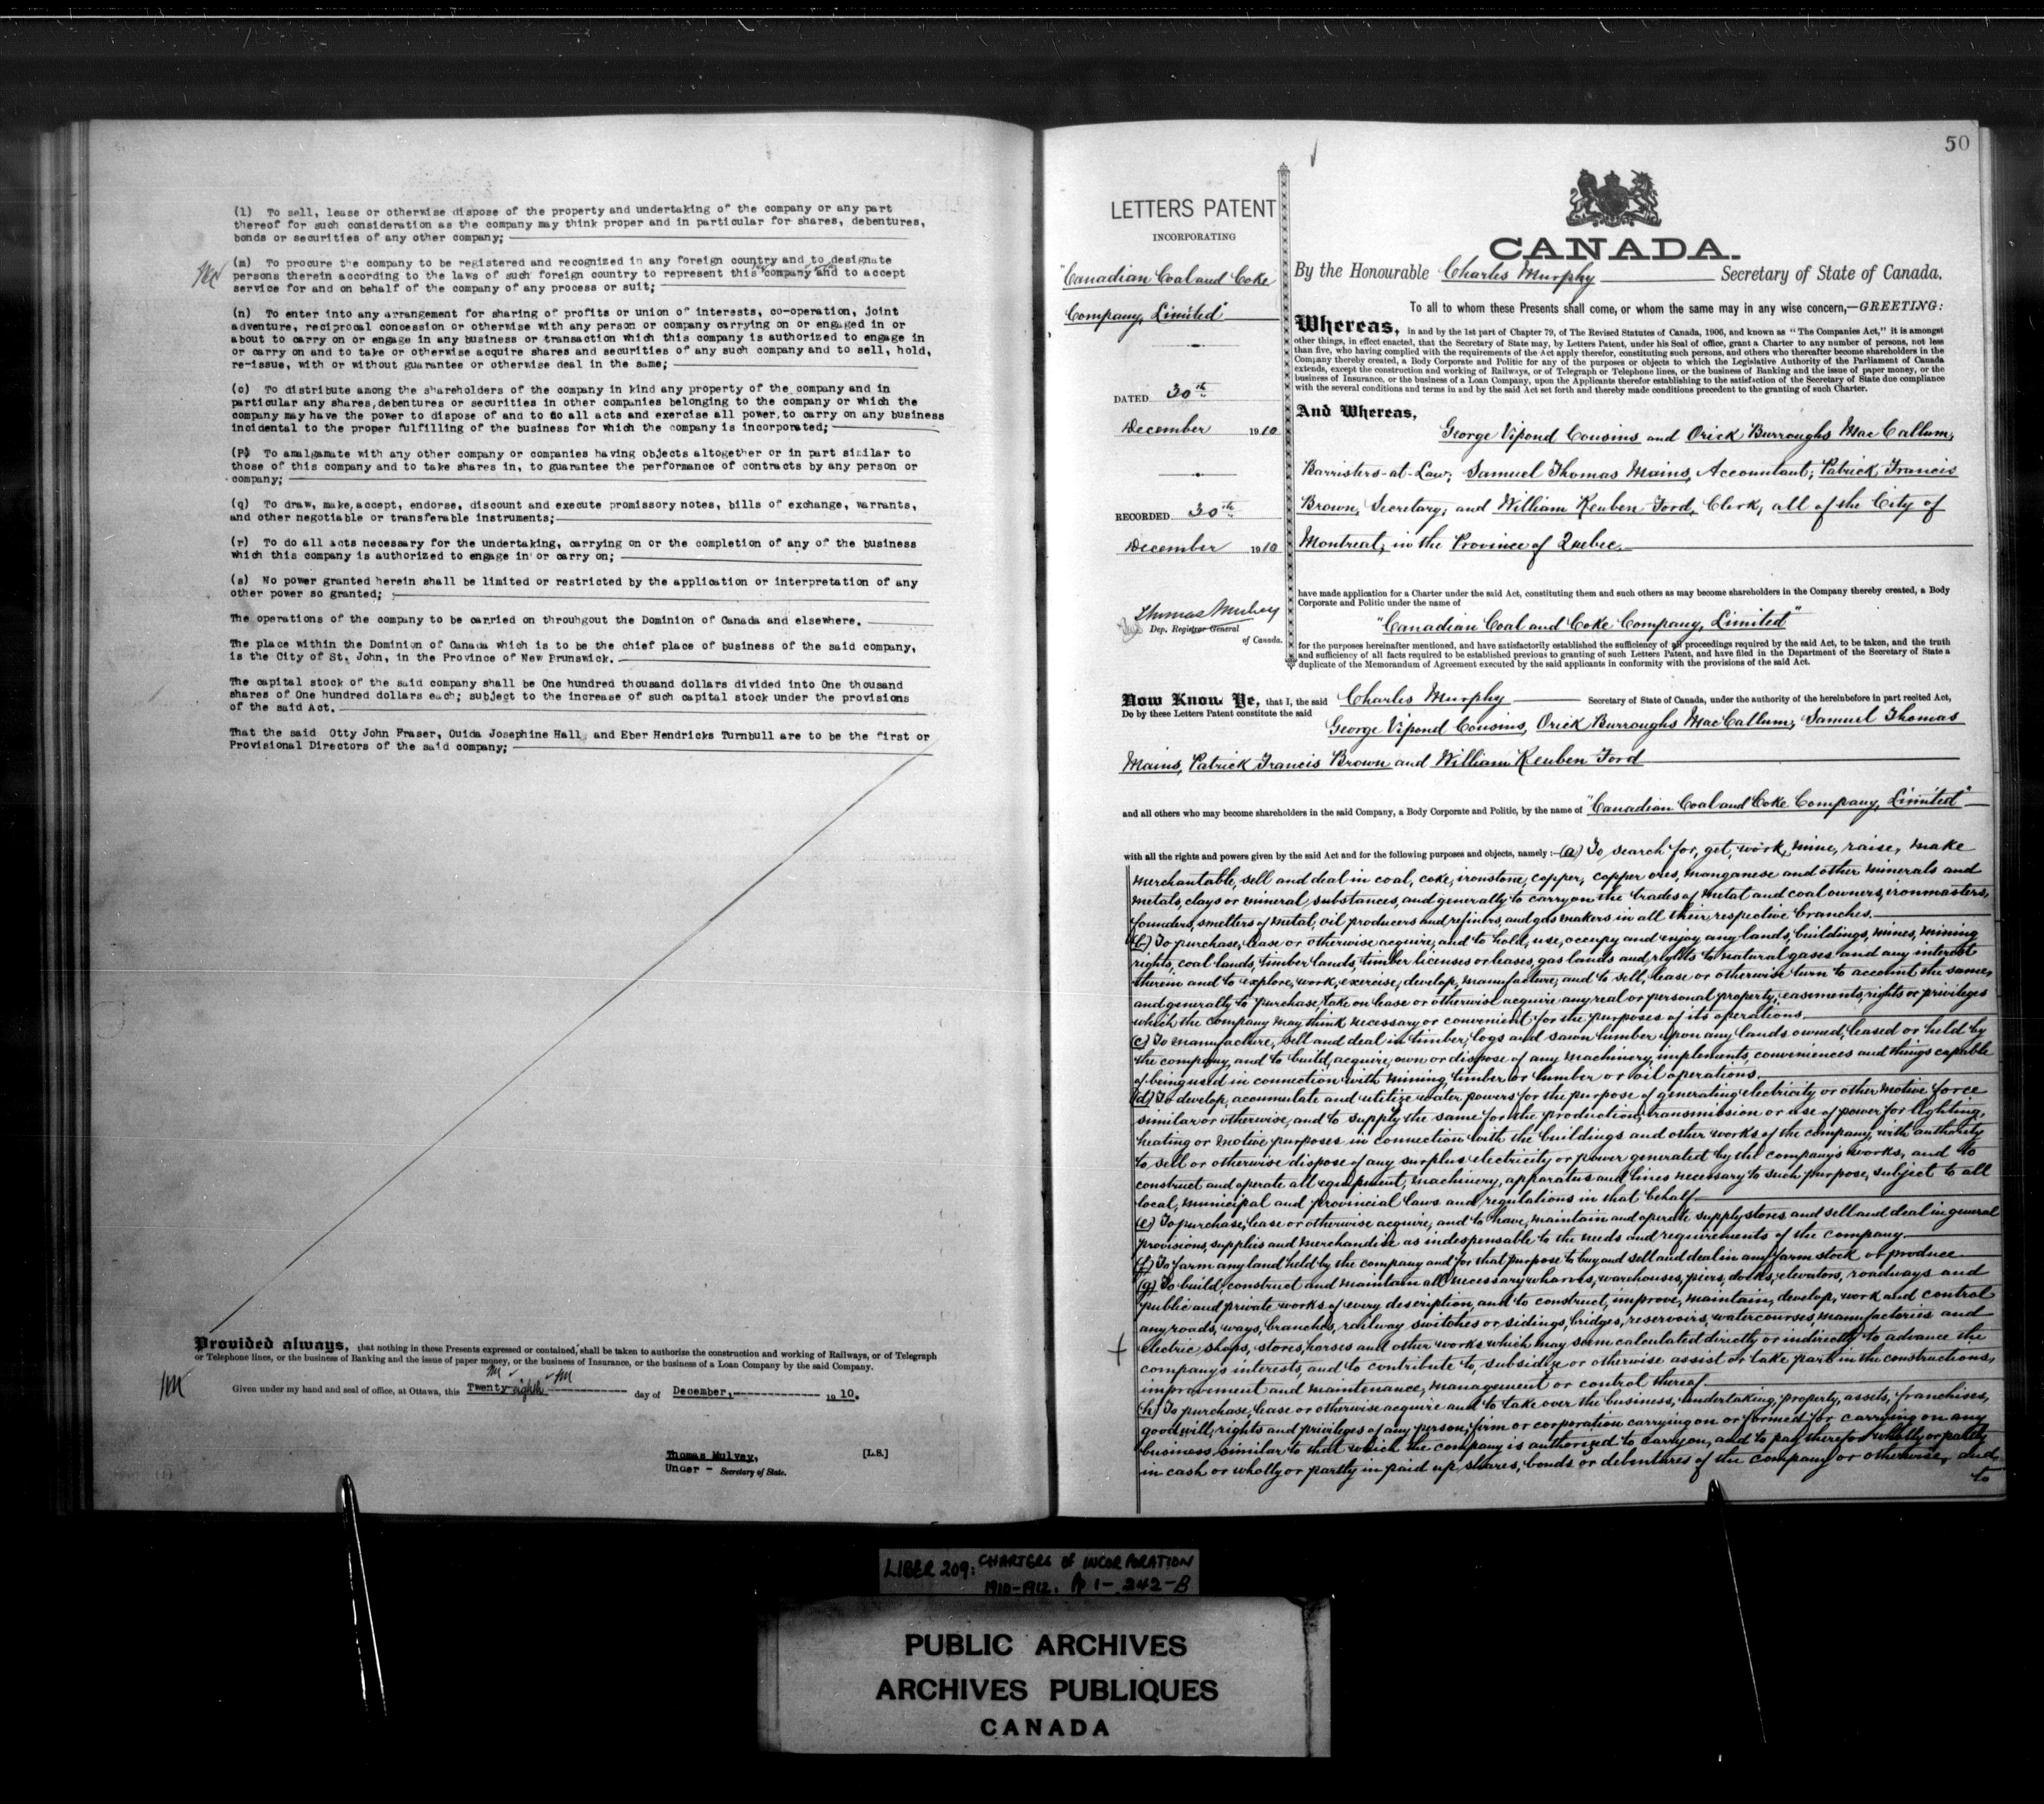 (l) To sell, lease or otherwise dispose of the property and undertaking of the company or any part
thereof for such consideration as the company may think proper and in particular for shares, debentures,
bonds or securities of any other company;
(m) To procure the company to be registered and recognized in any foreign country and to designate
persons therein according to the laws of such foreign country to represent this company and to accept
service for and on behalf of the company of any process or suit;
(n) To enter into any arrangement for sharing of profits or union of interests, co-operation, joint
adventure, reciprocal concession or otherwise with any person or company carrying on or engaged in or
about to carry on or engage in any business or transaction which this company is authorized to engage in
or carry on and to take or otherwise acquire shares and securities of any such company and to sell, hold,
re-issue, with or without guarantee or otherwise deal in the same;
(o) To distribute among the shareholders of the company in kind any property of the company and in
particular any shares, debentures or securities in other companies belonging to the company or which the
company may have the power to dispose of and to do all acts and exercise all power, to carry on any business
incidental to the proper fulfilling of the business for which the company is incorporated;
(P) To amalgamate with any other company or companies having objects altogether or in part similar to
those of this company and to take shares in, to guarantee the performance of contracts by any person or
company;
(q) To draw, make, accept, endorse, discount and execute promissory notes, bills of exchange, warrants,
and other negotiable or transferable instruments;
(r) To do all acts necessary for the undertaking, carrying on or the completion of any of the business
which this company is authorized to engage in or carry on;
(s) No power granted herein shall be limited or restricted by the application or interpretation of any
other power so granted;
The operations of the company to be carried on throuhgout the Dominion of Canada and elsewhere.
The place within the Dominion of Canada which is to be the chief place of business of the said company,
is the City of St. John, in the Province of New Brunswick.
The capital stock of the said company shall be One hundred thousand dollars divided into One thousand
shares of One hundred dollars each; subject to the increase of such capital stock under the provisions
of the said Act.
That the said Otty John Fraser, Ouida Josephine Hall and Eber Hendricks Turnbull are to be the first or
Provisional Directors of the said company;
Provided always, that nothing in these Presents expressed or contained, shall be taken to authorize the construction and working of Railways, or of Telegraph
or Telephone lines, or the business of Banking and the issue of paper money, or the business of Insurance, or the business of a Loan Company by the said Company.
Given under my hand and seal of office, at Ottawa, this Twenty eighth day of December, 1910.
Thomas Mulvey, [L.S.]
Under - Secretary of State.
50
LETTERS PATENT
INCORPORATING
"Canadian Coal and Coke
Company, Limited"
DATED 30th
December 1910
RECORDED 30th
December 1910
Thomas Mulvey
Dep. Registrar General
of Canada.
CANADA.
By the Honourable Charles Murphy Secretary of State of Canada.
To all to whom these Presents shall come, or whom the same may in any wise concern,—GREETING:
Whereas, in and by the 1st part of Chapter 79, of The Revised Statutes of Canada, 1906, and known as "The Companies Act," it is amongst
other things, in effect enacted, that the Secretary of State may, by Letters Patent, under his Seal of office, grant a Charter to any number of persons, not less
than five, who having complied with the requirements of the Act apply therefor, constituting such persons, and others who thereafter become shareholders in the
Company thereby created, a Body Corporate and Politic for any of the purposes or objects to which the Legislative Authority of the Parliament of Canada
extends, except the construction and working of Railways, or of Telegraph or Telephone lines, or the business of Banking and the issue of paper money, or the
business of Insurance, or the business of a Loan Company, upon the Applicants therefor establishing to the satisfaction of the Secretary of State due compliance
with the several conditions and terms in and by the said Act set forth and thereby made conditions precedent to the granting of such Charter.
And Whereas,
George Vipond Cousins and Orick Burroughs MacCallum,
Barristers-at-Law; Samuel Thomas Mains, Accountant; Patrick Francis
Brown, Secretary; and William Reuben Ford, Clerk, all of the City of
Montreal, in the Province of Quebec,
have made application for a Charter under the said Act, constituting them and such others as may become shareholders in the Company thereby created, a Body
Corporate and Politic under the name of
"Canadian Coal and Coke Company, Limited"
for the purposes hereinafter mentioned, and have satisfactorily established the sufficiency of all proceedings required by the said Act, to be taken, and the truth
and sufficiency of all facts required to be established previous to granting of such Letters Patent, and have filed in the Department of the Secretary of State a
duplicate of the Memorandum of Agreement executed by the said applicants in conformity with the provisions of the said Act.
Now Know Ye, that I, the said Charles Murphy Secretary of State of Canada, under the authority of the hereinbefore in part recited Act,
Do by these Letters Patent constitute the said
George Vipond Cousins, Orick Burroughs MacCallum, Samuel Thomas
Mains, Patrick Francis Brown and William Reuben Ford
and all others who may become shareholders in the said Company, a Body Corporate and Politic, by the name of "Canadian Coal and Coke Company, Limited"
with all the rights and powers given by the said Act and for the following purposes and objects, namely :—(a) To search for, get, work, mine, raise, make
merchantable, sell and deal in coal, coke, ironstone, copper, copper ores, manganese and other minerals and
metals, clays or mineral substances, and generally to carry on the trades of metal and coal owners, ironmasters,
founders, smelters of metal, oil producers and refiners, and gas makers in all their respective branches.
(b) To purchase, lease or otherwise acquire, and to hold, use, occupy and enjoy any lands, buildings, mines, mining
rights, coal lands, timber lands, timber licenses or leases, gas lands and rights to natural gases and any interest
therein and to explore, work, exercise, develop, manufacture, and to sell, lease or otherwise turn to account the same,
and generally to purchase, take on lease or otherwise acquire any real or personal property, easements, rights or privileges
which the company may think necessary or convenient for the purposes of its operations.
(c) To manufacture, sell and deal in timber, logs and sawn lumber upon any lands owned, leased or held by
the company, and to build, acquire, own or dispose of any machinery, implements, conveniences and things capable
of being used in connection with mining, timber or lumber or oil operations.
(d) To develop, accumulate and utilize water powers for the purpose of generating electricity or other motive force
similar or otherwise, and to supply the same for the production, transmission or use of power for lighting,
heating or motive purposes in connection with the buildings and other works of the company, with authority
to sell or otherwise dispose of any surplus electricity or power generated by the company's works, and to
construct and operate all equipment, machinery, apparatus and lines necessary to such purpose, subject to all
local, municipal and provincial laws and regulations in that behalf.
(e) To purchase, lease or otherwise acquire, and to have, maintain and operate supply stores and sell and deal in general
provisions, supplies and merchandise as indespensable to the needs and requirements of the company.
(f) To farm any land held by the company and for that purpose to buy and sell and deal in any farm stock or produce.
(g) To build, construct and maintain all necessary wharves, warehouses, piers, docks, elevators, roadways and
public and private works of every description, and to construct, improve, maintain, develop, work and control
any roads, ways, branches, railway switches or sidings, bridges, reservoirs, watercourses, manufactories and
electric shops, stores, horses and other works which may seem calculated directly or indirectly to advance the
company's interests, and to contribute to, subsidize or otherwise assist or take part in the constructions,
improvement and maintenance, management or control thereof.
(h) To purchase, lease or otherwise acquire and to take over the business, undertaking, property, assets, franchises,
goodwill, rights and privileges of any person, firm or corporation carrying on or formed for carrying on any
business similar to that which the company is authorized to carry on, and to pay therefor wholly or partly
in cash or wholly or partly in paid up shares, bonds or debentures of the company or otherwise, and
to
LIBER 209: CHARTERS OF INCORPORATION
1910-1912. Pp 1- 242-B
PUBLIC ARCHIVES
ARCHIVES PUBLIQUES
CANADA